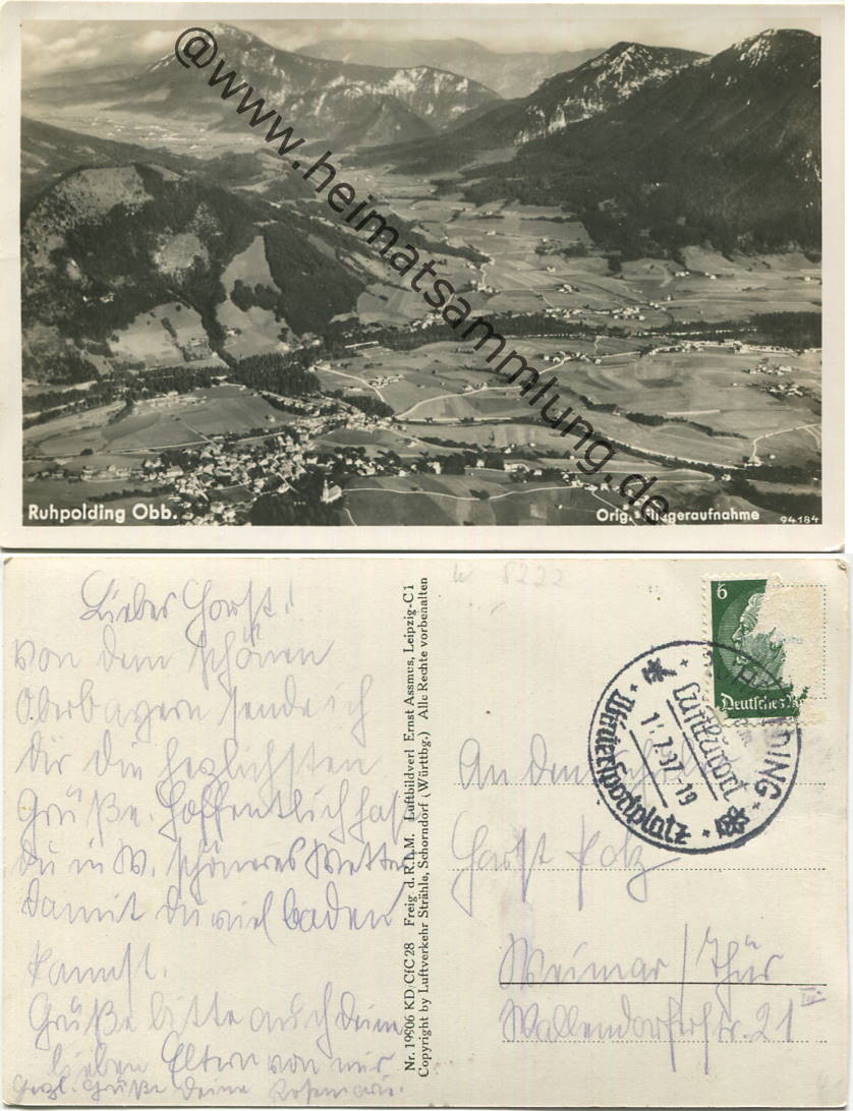 @www.heimatsammlung.de
Ruhpolding Obb.
Orig. Fliegeraufnahme
94184
W 8222
Lieber Horst!
Von dem schönen
Oberbayern sende ich
Dir die herzlichsten
Grüße. Hoffentlich hast
Du in W. schöneres Wetter
damit Du viel baden
kannst.
Grüße bitte auch Deine
lieben Eltern von mir
Herzl. Grüße Deine Rosemarie.
Nr. 19906 KD/CfC 28 Freig d. R.L.M. Luftbildverl Ernst Assmus, Leipzig-C 1
Copyright by Luftverkehr Strähle, Schorndorf (Württbg.) Alle Rechte vorbehalten
6
Deutsches R
Luftkurort
7.37.-19
Wintersportplatz
An den
Horst
Weimar / Thür
Wallendorferstr. 21 III